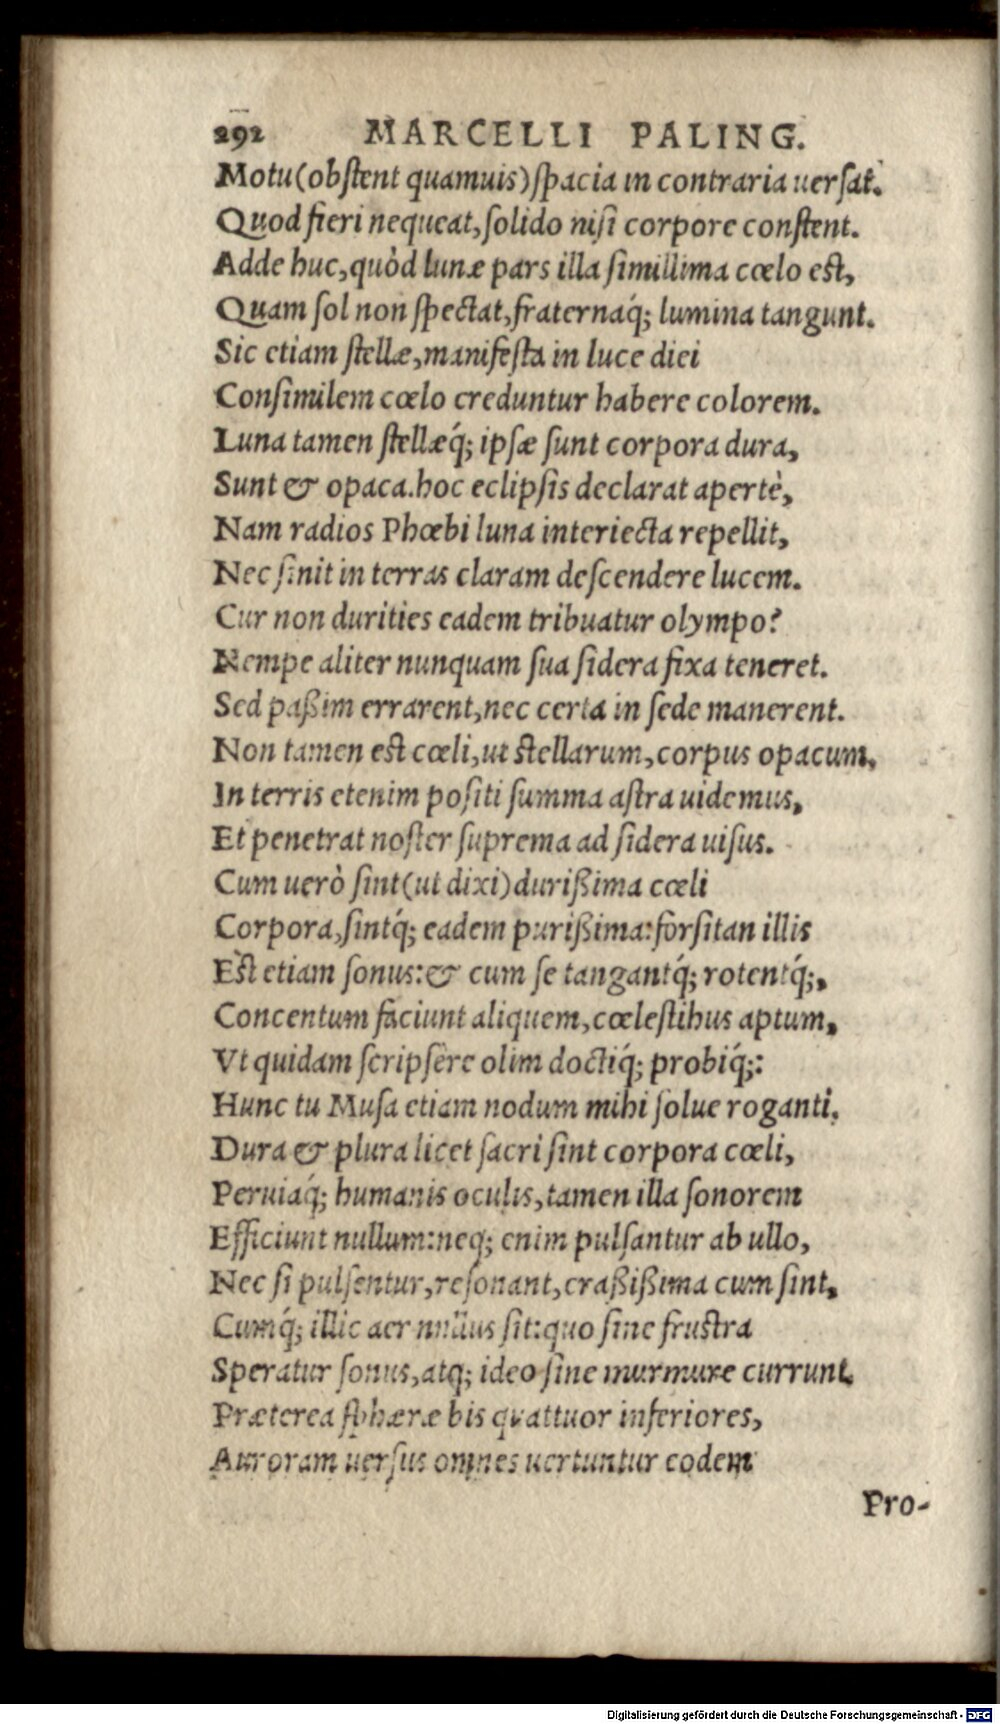 292 MARCELLI PALING.
Motu(obſtent quamuis)ſpacia in contraria uerſat.
Quod fieri nequeat,ſolido niſi corpore conſtent.
Adde huc,quòd lunæ pars illa ſimillima cœlo eſt,
Quam ſol non ſpectat,fraternaq́; lumina tangunt.
Sic etiam ſtellæ,manifeſta in luce diei
Conſimilem cœlo creduntur habere colorem.
Luna tamen ſtellæq́; ipſæ ſunt corpora dura,
Sunt & opaca.hoc eclipſis declarat apertè,
Nam radios Phœbi luna interiecta repellit,
Nec ſinit in terras claram deſcendere lucem.
Cur non durities eadem tribuatur olympo?
Nempe aliter nunquam ſua ſidera fixa teneret.
Sed paßim errarent,nec certa in ſede manerent.
Non tamen est cœli,ut stellarum,corpus opacum,
In terris etenim poſiti ſumma aſtra uidemus,
Et penetrat noſter ſuprema ad ſidera uiſus.
Cum uerò ſint(ut dixi)durißima cœli
Corpora,ſintq́; eadem purißima:forſitan illis
Est etiam ſonus:& cum ſe tangantq́; rotentq́;,
Concentum faciunt aliquem,cœleſtibus aptum,
Vt quidam ſcripſêre olim doctiq́; probiq́;:
Hunc tu Muſa etiam nodum mihi ſolue roganti.
Dura & plura licet ſacri ſint corpora cœli,
Peruiaq́; humanis oculis,tamen illa ſonorem
Efficiunt nullum:neq; enim pulſantur ab ullo,
Nec ſi pulſentur,reſonant,craßißima cum ſint,
Cumq́; illic aer nullus ſit:quo ſine fruſtra
Speratur ſonus,atq; ideo ſine murmure currunt.
Præterea ſphæræ bis quattuor inferiores,
Auroram uerſus omnes uertuntur eodem
Pro-
Digitalisierung gefördert durch die Deutsche Forschungsgemeinschaft - DFG